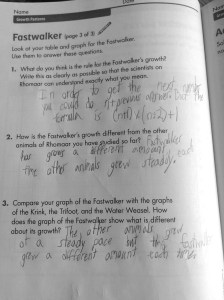 Name
Date
Growth Patterns
Fastwalker (page 3 of 3)
Look at your table and graph for the Fastwalker.
Use them to answer these questions.
1. What do you think is the rule for the Fastwalker's growth?
Write this as clearly as possible so that the scientists on
Rhomaar can understand exactly what you mean.
In order to get the next number
you could do n+previous answer. But the
formula is
2. How is the Fastwalker's growth different from the other
animals of Rhomaar you have studied so far? Fastwalker
has grows a different amount each
the other animals grew steady.
3. Compare your graph of the Fastwalker with the graphs
of the Krink, the Trifoot, and the Water Weasel. How
does the graph of the Fastwalker show what is different
about its growth? The other animals grew
at a steady pace but the fastwalker
grew a different amount each time.